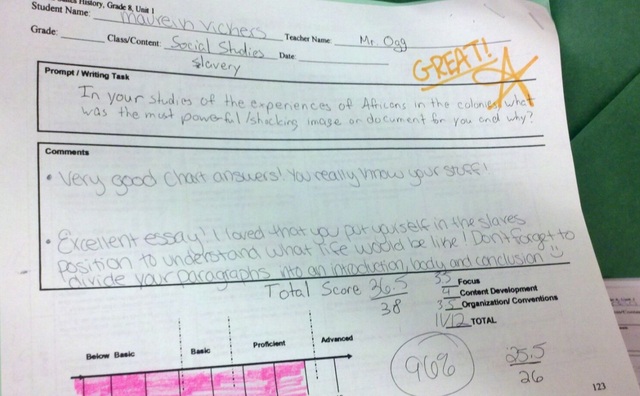 History, Grade 8, Unit 1
Student Name: Maurein Vickers
Teacher Name: Mr. Ogg
Grade: Class/Content: Social Studies Date:
Slavery
GREAT!
Prompt / Writing Task
In your studies of the experiences of Africans in the colonies, what
was the must powerful/shocking image or document for you and why?
Comments
• Very good chart answers! You really know your stuff!
• Excellent essay! I loved that you put yourself in the slaves
position to understand what life would be like! Don't forget to
divide your paragraphs into an introduction, body and conclusion
Total Score 36.5
38
3.5 Focus
4 Content Development
3.5 Organization/ Conventions
11/12 TOTAL
Below Basic Basic Proficient Advanced
96%
25.5
26
123